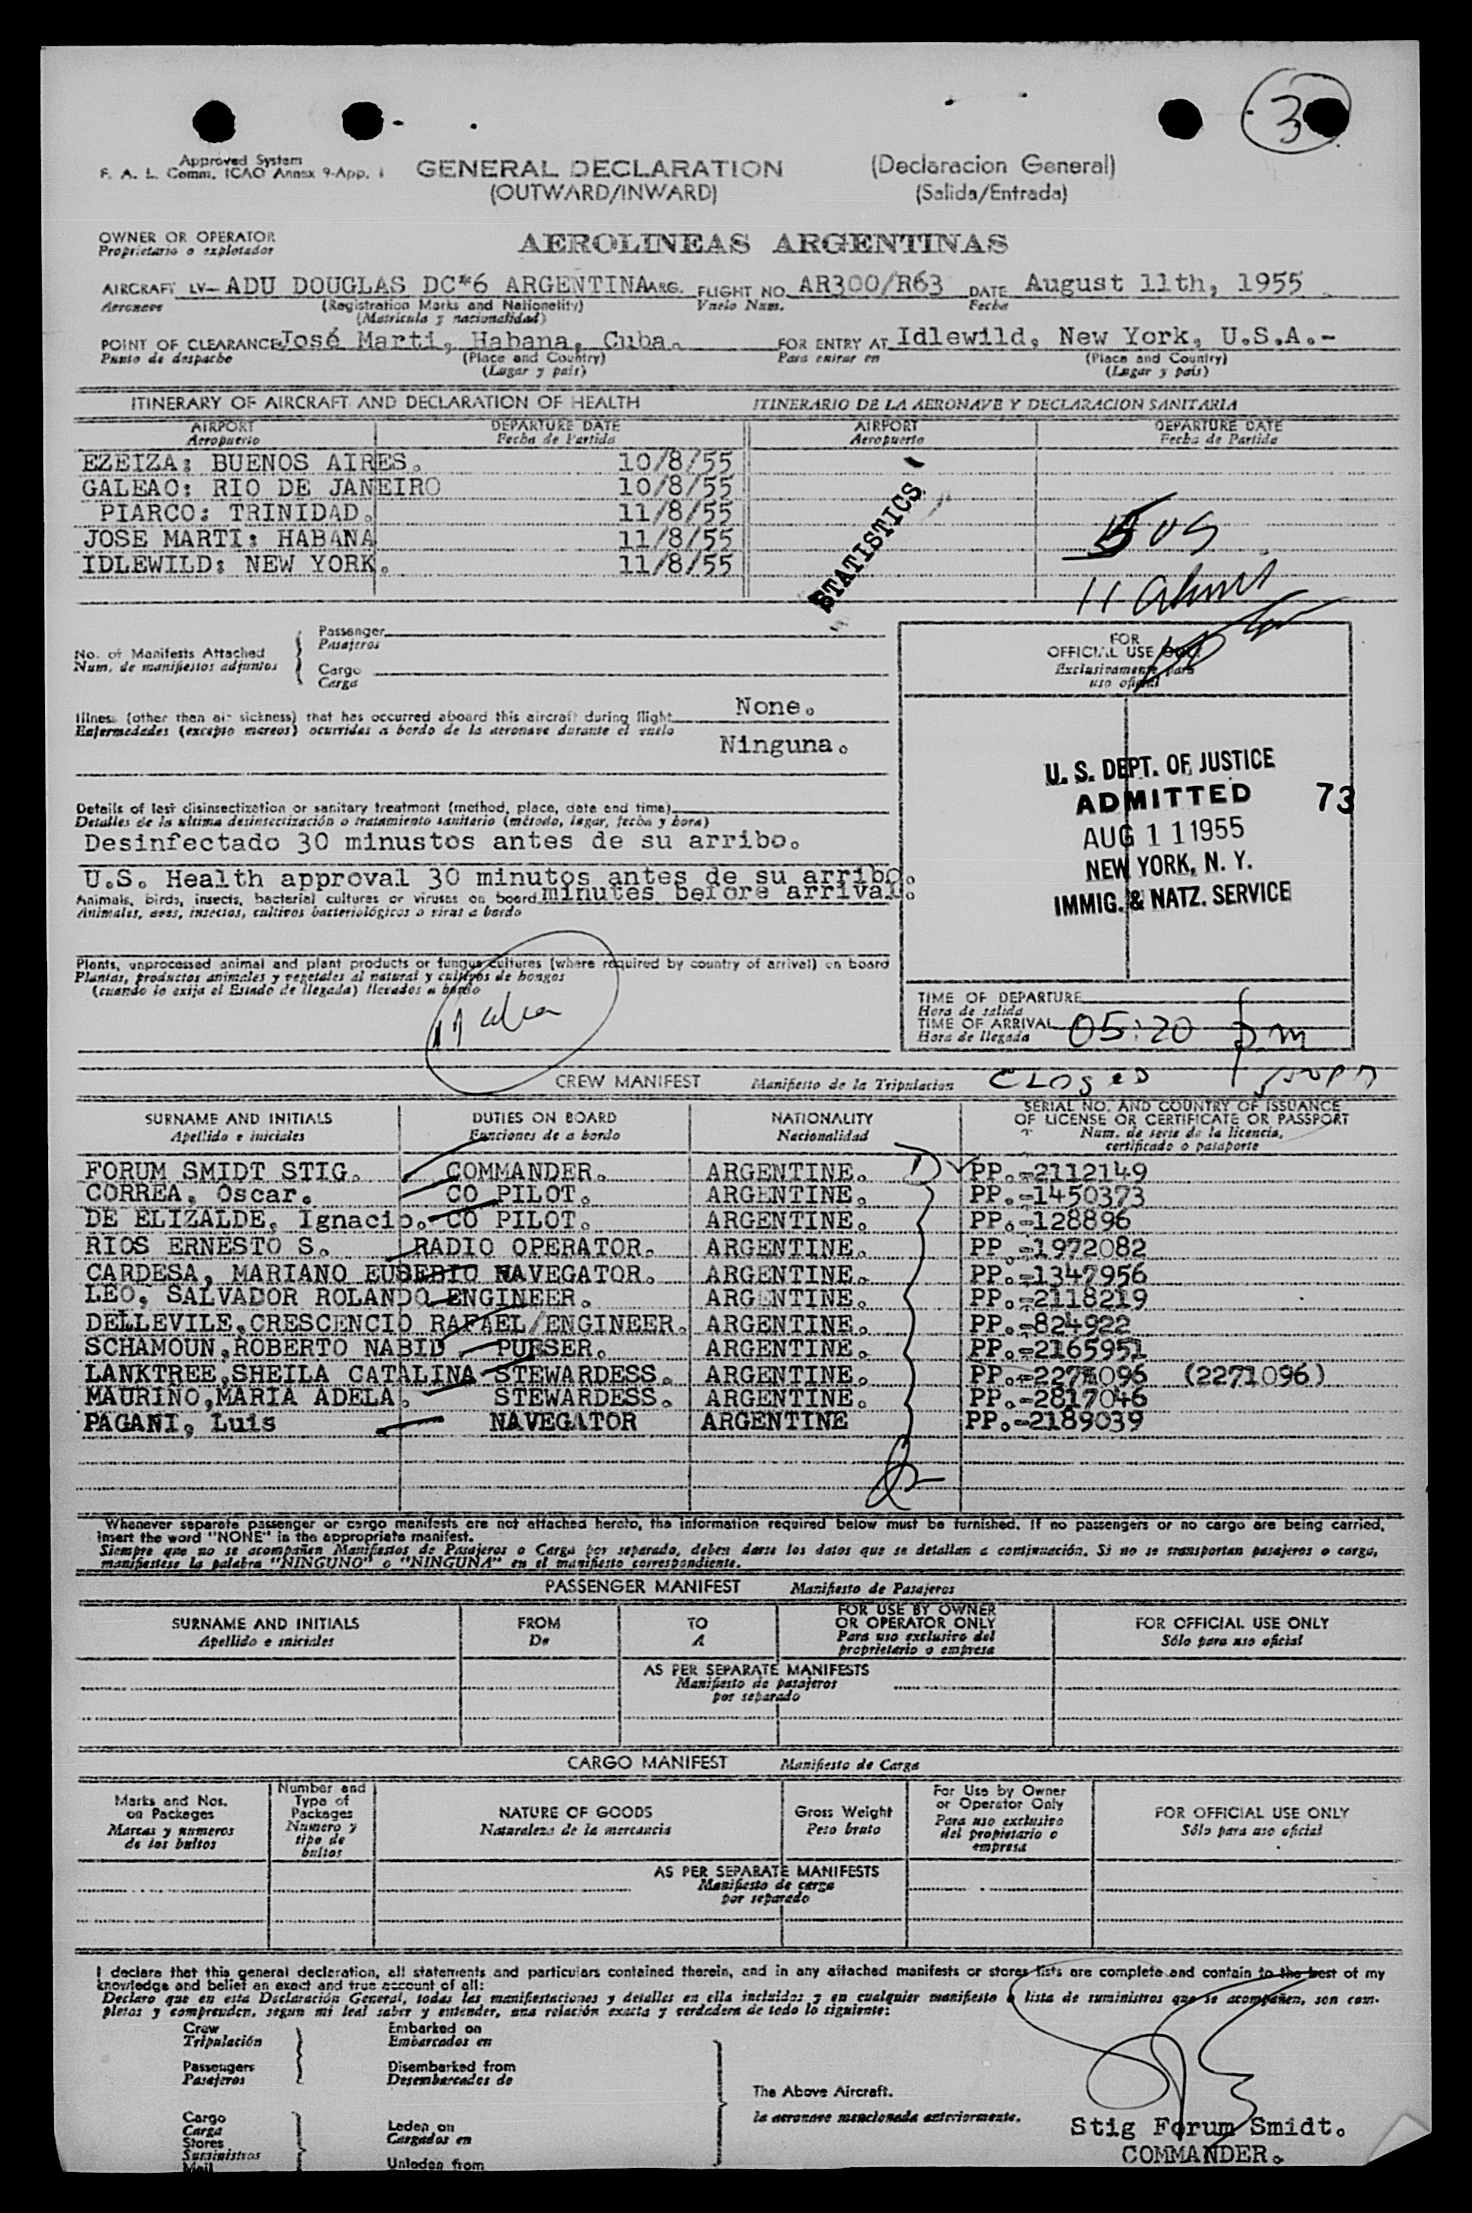 3
Approved System
F. A. L. Comm. ICAO Annex 9-App. 1
GENERAL DECLARATION
(OUTWARD/INWARD)
(Declaracion General)
(Salida/Entrada)
OWNER OR OPERATOR
Proprietario o explotador
AEROLINEAS ARGENTINAS
AIRCRAFT LV- ADU DOUGLAS DC*6 ARGENTINA ARG. FLIGHT NO. AR300/R63 DATE August 11th, 1955
Aeronave (Registration Marks and Nationality) Vuelo Num. Fecha
(Matricula y nacionalidad)
POINT OF CLEARANCE José Marti, Habana, Cuba. FOR ENTRY AT Idlewild, New York, U.S.A.-
Punto de despacho (Place and Country) Para entrar en (Place and Country)
(Lugar y pais) (Lugar y pais)
ITINERARY OF AIRCRAFT AND DECLARATION OF HEALTH ITINERARIO DE LA AERONAVE Y DECLARACION SANITARIA
AIRPORT DEPARTURE DATE AIRPORT DEPARTURE DATE
Aeropuerto Fecha de Partida Aeropuerto Fecha de Partida
EZEIZA: BUENOS AIRES. 10/8/55
GALEAO: RIO DE JANEIRO 10/8/55
PIARCO: TRINIDAD. 11/8/55
JOSE MARTI: HABANA 11/8/55
IDLEWILD: NEW YORK. 11/8/55
STATISTICS
No. of Manifests Attached
Num. de manifiestos adjuntos
Passenger
Pasajeros
Cargo
Carga
Illness (other than air sickness) that has occurred aboard this aircraft during flight None.
Enfermedades (excepto mareos) ocurridas a bordo de la aeronave durante el vuelo
Ninguna.
Details of last disinsectization or sanitary treatment (method, place, date and time)
Detalles de la ultima desinsectización o tratamiento sanitario (método, lugar, fecha y hora)
Desinfectado 30 minustos antes de su arribo.
U.S. Health approval 30 minutos antes de su arribo.
Animals, birds, insects, bacterial cultures or viruses on board minutes before arrival.
Animales, aves, insectos, cultivos bacteriológicos o virus a bordo
Plants, unprocessed animal and plant products or fungus cultures (where required by country of arrival) on board
Plantas, productos animales y vegetales al natural y cultivos de hongos
(cuando lo exija el Estado de llegada) llevados a bordo
FOR
OFFICIAL USE ONLY
Exclusivamente para
uso oficial
U. S. DEPT. OF JUSTICE
ADMITTED 73
AUG 11 1955
NEW YORK, N. Y.
IMMIG. & NATZ. SERVICE
TIME OF DEPARTURE
Hora de salida
TIME OF ARRIVAL 05:20 pm
Hora de llegada
CLOSED
CREW MANIFEST Manifiesto de la Tripulacion
SURNAME AND INITIALS DUTIES ON BOARD NATIONALITY SERIAL NO. AND COUNTRY OF ISSUANCE
OF LICENSE OR CERTIFICATE OR PASSPORT
Apellido e iniciales Funciones de a bordo Nacionalidad Num. de serie de la licencia,
certificado o pasaporte
FORUM SMIDT STIG. COMMANDER. ARGENTINE. PP.-2112149
CORREA, Oscar. CO PILOT. ARGENTINE. PP.-1450373
DE ELIZALDE, Ignacio. CO PILOT. ARGENTINE. PP.-128896
RIOS ERNESTO S. RADIO OPERATOR. ARGENTINE. PP.-1972082
CARDESA, MARIANO EUSEBIO NAVEGATOR. ARGENTINE. PP.-1347956
LEO, SALVADOR ROLANDO ENGINEER. ARGENTINE. PP.-2118219
DELLEVILE,CRESCENCIO RAFAEL/ENGINEER. ARGENTINE. PP.-824922
SCHAMOUN,ROBERTO NABID. PURSER. ARGENTINE. PP.-2165951
LANKTREE,SHEILA CATALINA STEWARDESS. ARGENTINE. PP.-2271096 (2271096)
MAURINO,MARIA ADELA. STEWARDESS. ARGENTINE. PP.-2817046
PAGANI, Luis NAVEGATOR ARGENTINE PP.-2189039
Whenever separate passenger or cargo manifests are not attached hereto, the information required below must be furnished. If no passengers or no cargo are being carried,
insert the word "NONE" in the appropriate manifest.
Siempre que no se acompañen Manifiestos de Pasajeros o Carga por separado, deben darse los datos que se detallan a continuación. Si no se transportan pasajeros o carga,
manifiestese la palabra "NINGUNO" o "NINGUNA" en el manifiesto correspondiente.
PASSENGER MANIFEST Manifiesto de Pasajeros
SURNAME AND INITIALS FROM TO FOR USE BY OWNER
OR OPERATOR ONLY FOR OFFICIAL USE ONLY
Apellido e iniciales De A Para uso exclusivo del
proprietario o empresa Sólo para uso oficial
AS PER SEPARATE MANIFESTS
Manifiesto de pasajeros
por separado
CARGO MANIFEST Manifiesto de Carga
Marks and Nos.
on Packages
Marcas y numeros
de los bultos
Number and
Type of
Packages
Numero y
tipo de
bultos
NATURE OF GOODS
Naturaleza de la mercancia
Gross Weight
Peso bruto
For Use by Owner
or Operator Only
Para uso exclusivo
del propietario o
empresa
FOR OFFICIAL USE ONLY
Sólo para uso oficial
AS PER SEPARATE MANIFESTS
Manifiesto de carga
por separado
I declare that this general declaration, all statements and particulars contained therein, and in any attached manifests or stores lists are complete and contain to the best of my
knowledge and belief an exact and true account of all:
Declaro que en esta Declaración General, todas las manifestaciones y detalles en ella incluidos y en cualquier manifiesto o lista de suministros que se acompañen, son com-
pletos y comprenden, segun mi leal saber y entender, una relación exacta y verdadera de todo lo siguiente:
Crew
Tripulación
Passengers
Pasajeros
Cargo
Carga
Stores
Suministros
Mail
Embarked on
Embarcados en
Disembarked from
Desembarcados de
Laden on
Cargados en
Unladen from
The Above Aircraft.
la aeronave mencionada anteriormente.
Stig Forum Smidt.
COMMANDER.